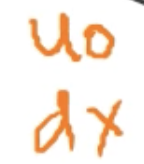 uo
dx